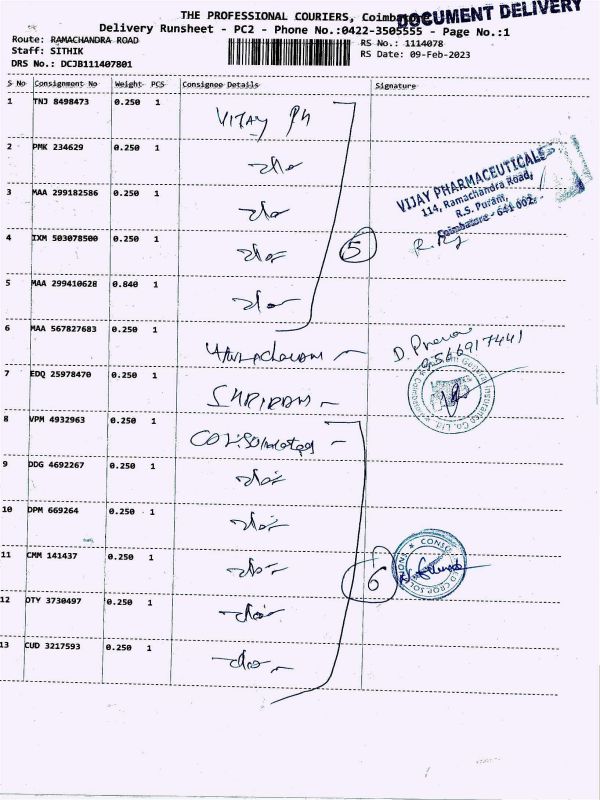 THE PROFESSIONAL COURIERS, Coimbatore
DOCUMENT DELIVERY
Delivery Runsheet - PC2 - Phone No.:0422-3505555 - Page No.:1
Route: RAMACHANDRA ROAD
RS No.: 1114078
Staff: SITHIK
RS Date: 09-Feb-2023
DRS No.: DCJB111407801
S No Consignment No Weight PCS Consignee Details Signature
1 TNJ 8498473 0.250 1 VIJAY Ph
2 PMK 234629 0.250 1 -do-
3 MAA 299182586 0.250 1 -do-
VIJAY PHARMACEUTICALS
114, Ramachandra Road,
R.S. Puram,
Coimbatore - 641 002.
4 IXM 503078500 0.250 1 -do-
5
5 MAA 299410628 0.840 1 -do-
6 MAA 567827683 0.250 1
9566917441
7 EDQ 25978470 0.250 1 SHRIRAM
General Insurance Co., Ltd. Coimbatore
8 VPM 4932963 0.250 1
9 DDG 4692267 0.250 1 -do-
10 DPM 669264 0.250 1 -do-
11 CMM 141437 0.250 1 -do-
6
12 OTY 3730497 0.250 1 -do-
13 CUD 3217593 0.250 1 -do-